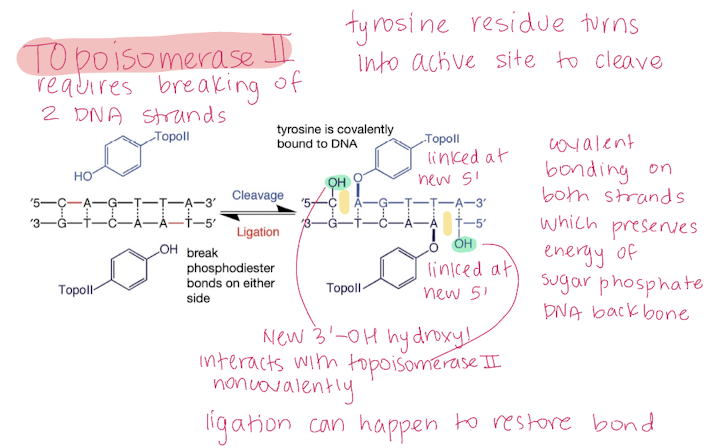 Topoisomerase II
requires breaking of
2 DNA strands
tyrosine residue turns
into active site to cleave
TopoII
HO
'5-C-A-G-T-T-A-3'
'3-G-T-C-A-A-T-5'
OH
TopoII
break
phosphodiester
bonds on either
side
Cleavage
Ligation
tyrosine is covalently
bound to DNA
TopoII
linked at
new 5'
OH
O
'5-C A-G-T-T-A-3'
'3-G-T-C-A-A T-5'
O
OH
TopoII
linked at
new 5'
covalent
bonding on
both strands
which preserves
energy of
sugar phosphate
DNA backbone
New 3'-OH hydroxyl
interacts with topoisomerase II
noncovalently
ligation can happen to restore bond